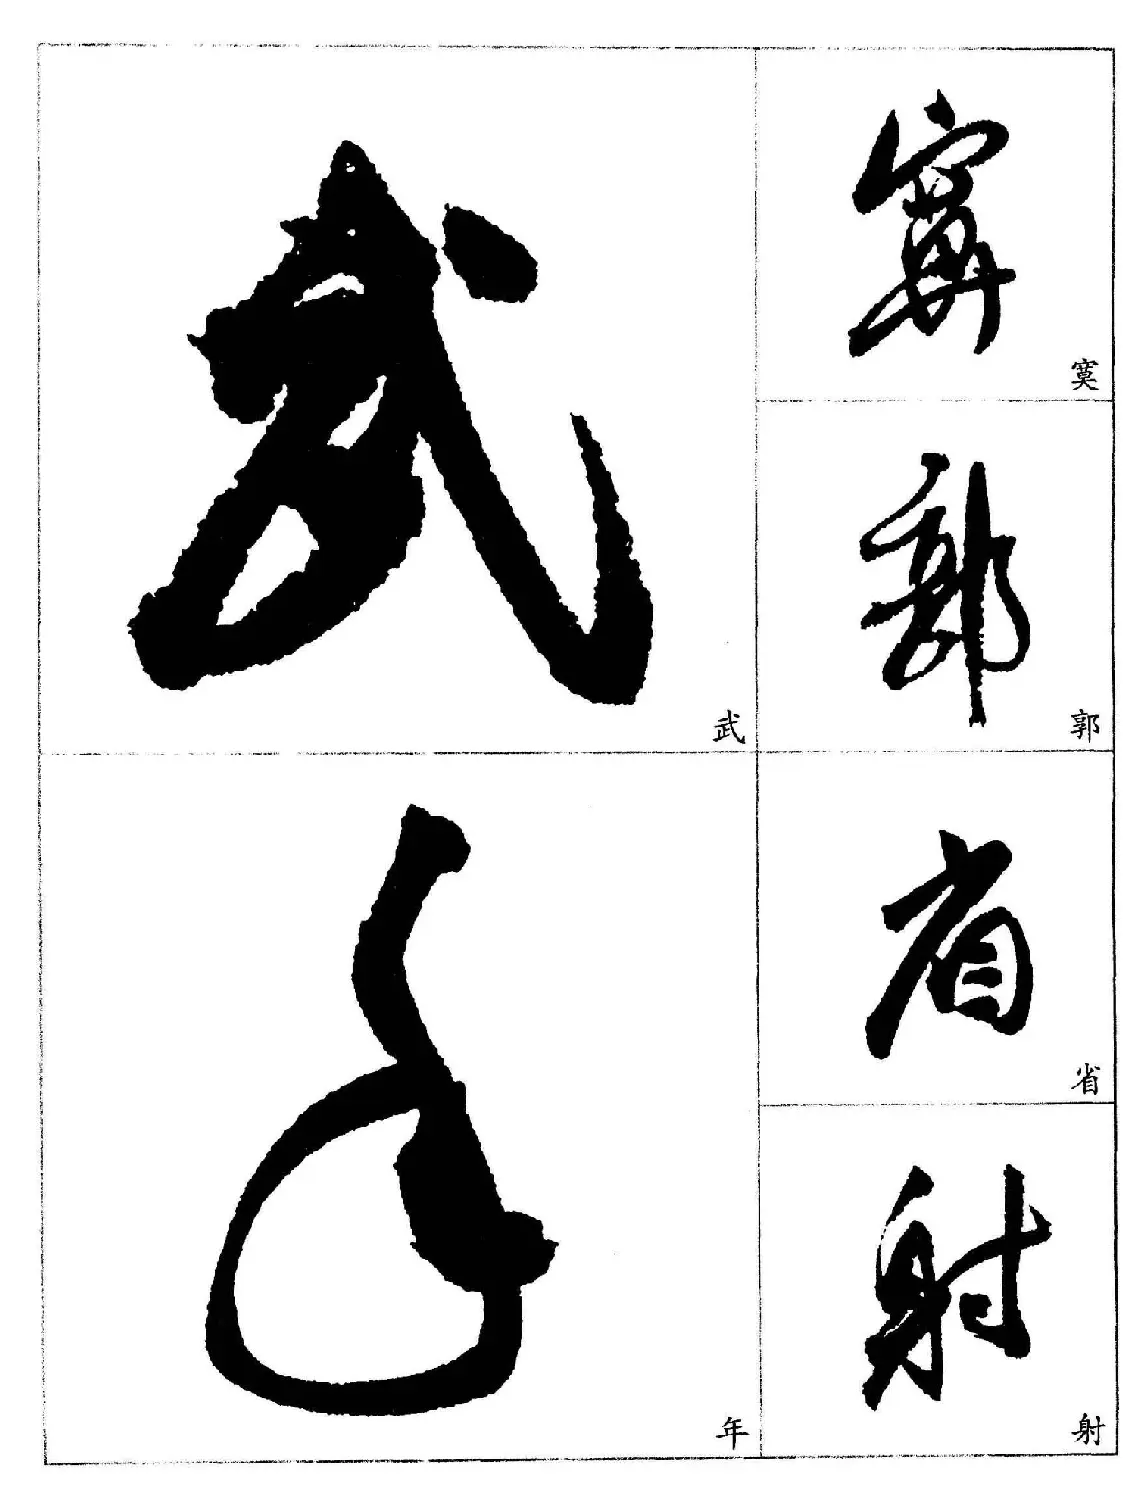 寞
郭
省
射
武
年
寞
郭
省
射
武
年